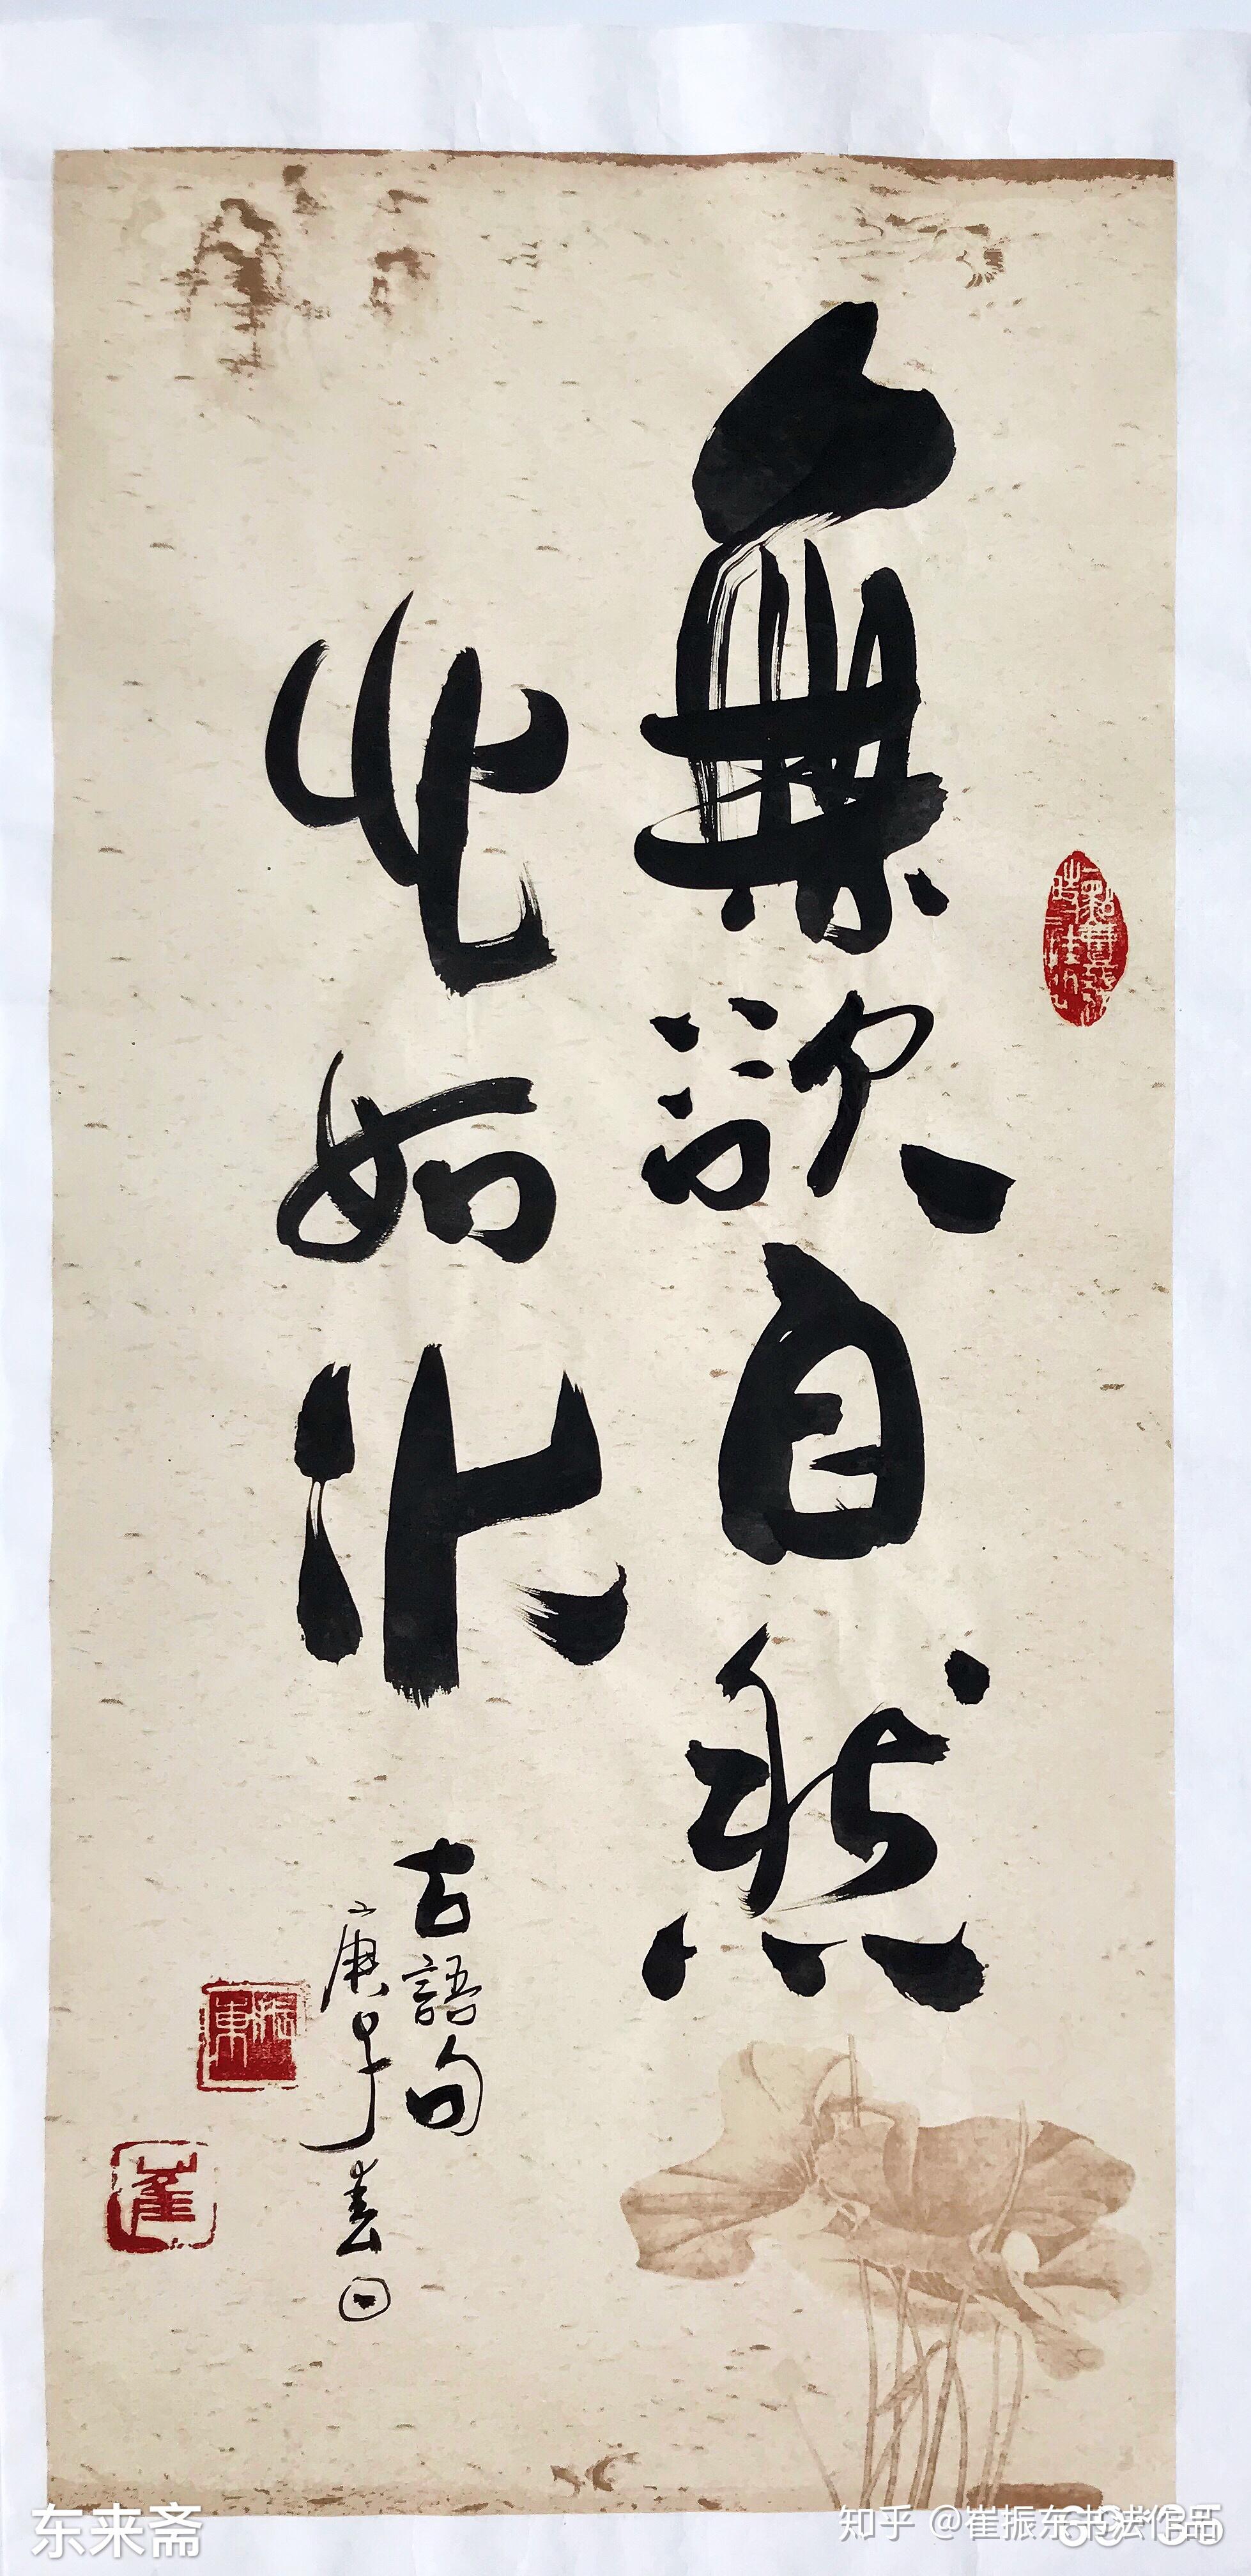 無欲自然
心如水
古語句
庚子春日
振東
崔
东来斋
知乎 @崔振东书法作品